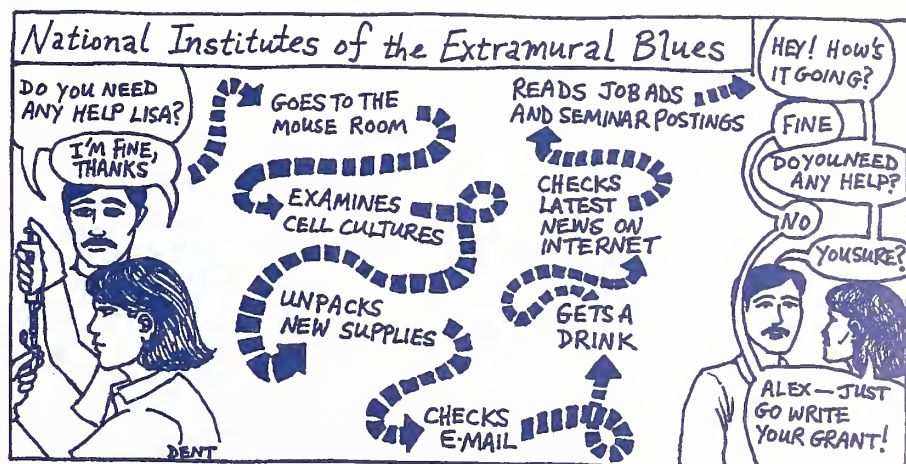 National Institutes of the Extramural Blues
DO YOU NEED
ANY HELP LISA?
I'M FINE,
THANKS
GOES TO THE
MOUSE ROOM
EXAMINES
CELL CULTURES
UNPACKS
NEW SUPPLIES
CHECKS
E-MAIL
GETS A
DRINK
CHECKS
LATEST
NEWS ON
INTERNET
READS JOB ADS
AND SEMINAR POSTINGS
HEY! HOW'S
IT GOING?
FINE
DO YOU NEED
ANY HELP?
NO
YOU SURE?
ALEX—JUST
GO WRITE
YOUR GRANT!
DENT